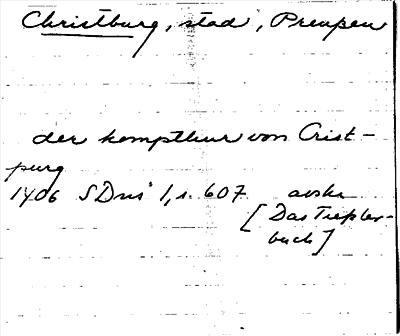 Christburg, stad, Preussen
der kompthur von Crist-
purg
1406 SDns 1, s. 607 avskr
[Das Tressler-
buch]